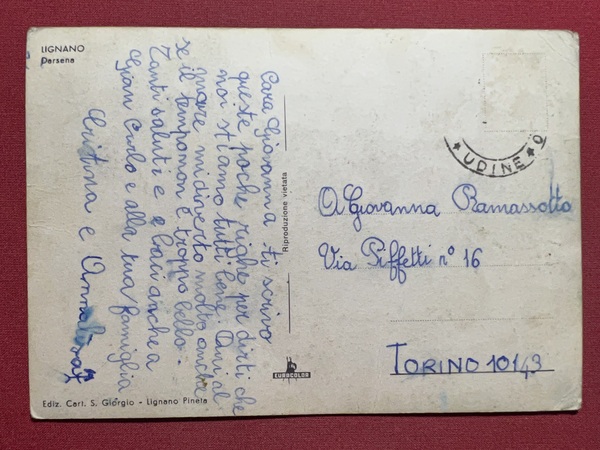 LIGNANO
Darsena
Cara Giovanna ti scrivo
queste poche righe per dirti che
noi stiamo tutti bene. Qui al
mare mi diverto molto anche
se il tempo non è troppo bello.
Tanti saluti e baci anche a
Gian Carlo e alla tua famiglia
Cristina e
Riproduzione vietata
EUROCOLOR
Ediz. Cart. S. Giorgio - Lignano Pineta
* UDINE *
A Giovanna Ramassotto
Via Piffetti n° 16
TORINO 10143